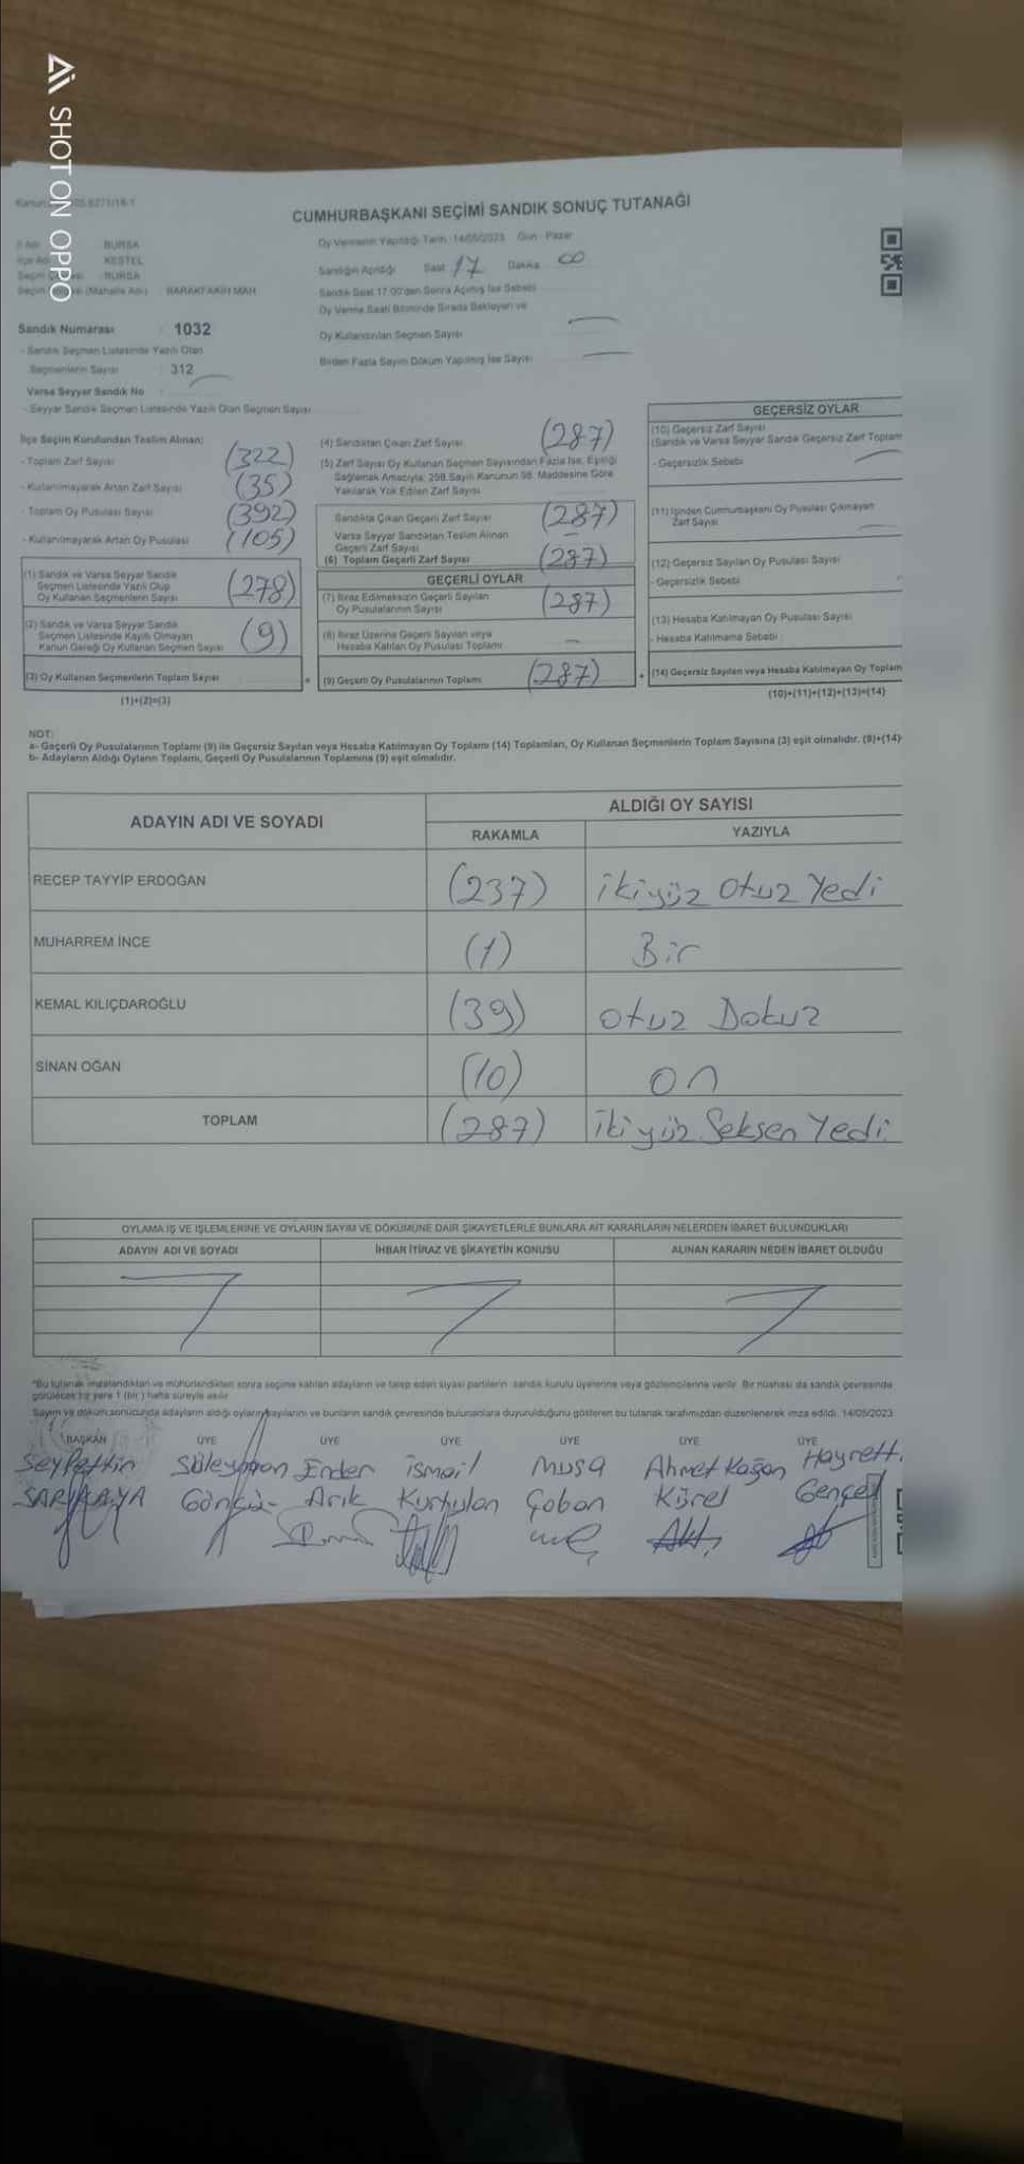 SHOT ON OPPO
CUMHURBAŞKANI SEÇİMİ SANDIK SONUÇ TUTANAĞI
BURSA
KESTEL
BURSA
BARAKFAKİH MAH
Oy Vermenin Yapıldığı Tarih : 14/05/2023 Gün : Pazar
Sandığın Açıldığı Saat 17 Dakika 00
Sandık Saat 17:00'den Sonra Açılmış İse Sebebi
Oy Verme Saati Bitiminde Sırada Bekleyen ve
Oy Kullandırılan Seçmen Sayısı
Birden Fazla Sayım Döküm Yapılmış İse Sayısı
Sandık Numarası : 1032
- Sandık Seçmen Listesinde Yazılı Olan
Seçmenlerin Sayısı : 312
Varsa Seyyar Sandık No :
- Seyyar Sandık Seçmen Listesinde Yazılı Olan Seçmen Sayısı
İlçe Seçim Kurulundan Teslim Alınan:
- Toplam Zarf Sayısı (322)
- Kullanılmayarak Artan Zarf Sayısı (35)
- Toplam Oy Pusulası Sayısı (392)
- Kullanılmayarak Artan Oy Pusulası (105)
(1) Sandık ve Varsa Seyyar Sandık
Seçmen Listesinde Yazılı Olup
Oy Kullanan Seçmenlerin Sayısı (278)
(2) Sandık ve Varsa Seyyar Sandık
Seçmen Listesinde Kayıtlı Olmayan
Kanun Gereği Oy Kullanan Seçmen Sayısı (9)
(3) Oy Kullanan Seçmenlerin Toplam Sayısı
(1)+(2)=(3)
(4) Sandıktan Çıkan Zarf Sayısı (287)
(5) Zarf Sayısı Oy Kullanan Seçmen Sayısından Fazla İse, Eşitliği
Sağlamak Amacıyla; 298 Sayılı Kanunun 98. Maddesine Göre
Yakılarak Yok Edilen Zarf Sayısı
Sandıkta Çıkan Geçerli Zarf Sayısı (287)
Varsa Seyyar Sandıktan Teslim Alınan
Geçerli Zarf Sayısı
(6) Toplam Geçerli Zarf Sayısı (287)
GEÇERLİ OYLAR
(7) İtiraz Edilmeksizin Geçerli Sayılan
Oy Pusulalarının Sayısı (287)
(8) İtiraz Üzerine Geçerli Sayılan veya
Hesaba Katılan Oy Pusulası Toplamı
(9) Geçerli Oy Pusulalarının Toplamı (287)
GEÇERSİZ OYLAR
(10) Geçersiz Zarf Sayısı
(Sandık ve Varsa Seyyar Sandık Geçersiz Zarf Toplam
- Geçersizlik Sebebi
(11) İçinden Cumhurbaşkanı Oy Pusulası Çıkmayan
Zarf Sayısı
(12) Geçersiz Sayılan Oy Pusulası Sayısı
- Geçersizlik Sebebi
(13) Hesaba Katılmayan Oy Pusulası Sayısı
- Hesaba Katılmama Sebebi
(14) Geçersiz Sayılan veya Hesaba Katılmayan Oy Toplam
(10)+(11)+(12)+(13)=(14)
NOT:
a- Geçerli Oy Pusulalarının Toplamı (9) ile Geçersiz Sayılan veya Hesaba Katılmayan Oy Toplamı (14) Toplamları, Oy Kullanan Seçmenlerin Toplam Sayısına (3) eşit olmalıdır. (9)+(14)
b- Adayların Aldığı Oyların Toplamı, Geçerli Oy Pusulalarının Toplamına (9) eşit olmalıdır.
ADAYIN ADI VE SOYADI
ALDIĞI OY SAYISI
RAKAMLA YAZIYLA
RECEP TAYYİP ERDOĞAN (237) ikiyüz Otuz Yedi
MUHARREM İNCE (1) Bir
KEMAL KILIÇDAROĞLU (39) otuz Dokuz
SİNAN OĞAN (10) on
TOPLAM (287) ikiyüz Seksen Yedi
OYLAMA İŞ VE İŞLEMLERİNE VE OYLARIN SAYIM VE DÖKÜMÜNE DAİR ŞİKAYETLERLE BUNLARA AİT KARARLARIN NELERDEN İBARET BULUNDUKLARI
ADAYIN ADI VE SOYADI İHBAR İTİRAZ VE ŞİKAYETİN KONUSU ALINAN KARARIN NEDEN İBARET OLDUĞU
"Bu tutanak imzalandıktan ve mühürlendikten sonra seçime katılan adayların ve talep eden siyasi partilerin sandık kurulu üyelerine veya gözlemcilerine verilir. Bir nüshası da sandık çevresinde
görülecek bir yere 1 (bir) hafta süreyle asılır.
Sayım ve döküm sonucunda adayların aldığı oyların sayılarını ve bunların sandık çevresinde bulunanlara duyurulduğunu gösteren bu tutanak tarafımızdan düzenlenerek imza edildi. 14/05/2023
BAŞKAN ÜYE ÜYE ÜYE ÜYE ÜYE ÜYE
Seyfettin Süleyman Ender ismail Musa Ahmet Kağan Hayrett
SARIKAYA Arık Kurtulan Çoban Kürel Gençel